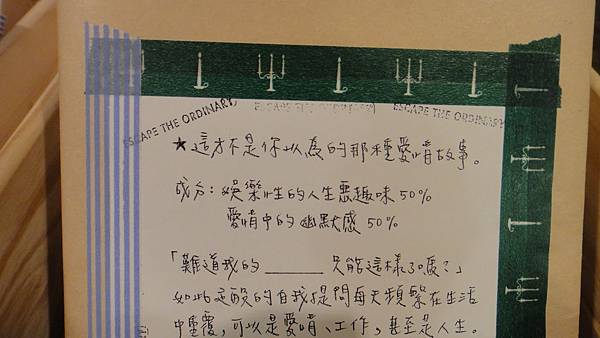 ESCAPE THE ORDINARY
ESCAPE THE ORDINARY
ESCAPE THE ORDINARY
★這才不是你以為的那種愛情故事。
成分：娛樂性的人生惡趣味50%
愛情中的幽默感50%
「難道我的______只能這樣了嗎？」
如此老酸的自我提問每天頻繁在生活
中重覆，可以是愛情、工作，甚至是人生。